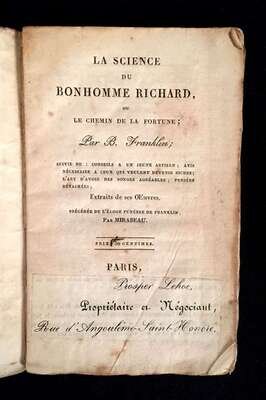 LA SCIENCE
DU
BONHOMME RICHARD,
OU
LE CHEMIN DE LA FORTUNE;
Par B. Franklin;
SUIVIE DE : CONSEILS A UN JEUNE ARTISAN; AVIS
NÉCESSAIRE A CEUX QUI VEULENT DEVENIR RICHES;
L'ART D'AVOIR DES SONGES AGRÉABLES; PENSÉES
DÉTACHÉES;
Extraits de ses Œuvres.
PRÉCÉDÉE DE L'ÉLOGE FUNÈBRE DE FRANKLIN,
PAR MIRABEAU.
PRIX: CENTIMES.
PARIS,
Prosper Lehoc,
Propriétaire et Négociant,
Rue d'Angoulême-Saint-Honoré,